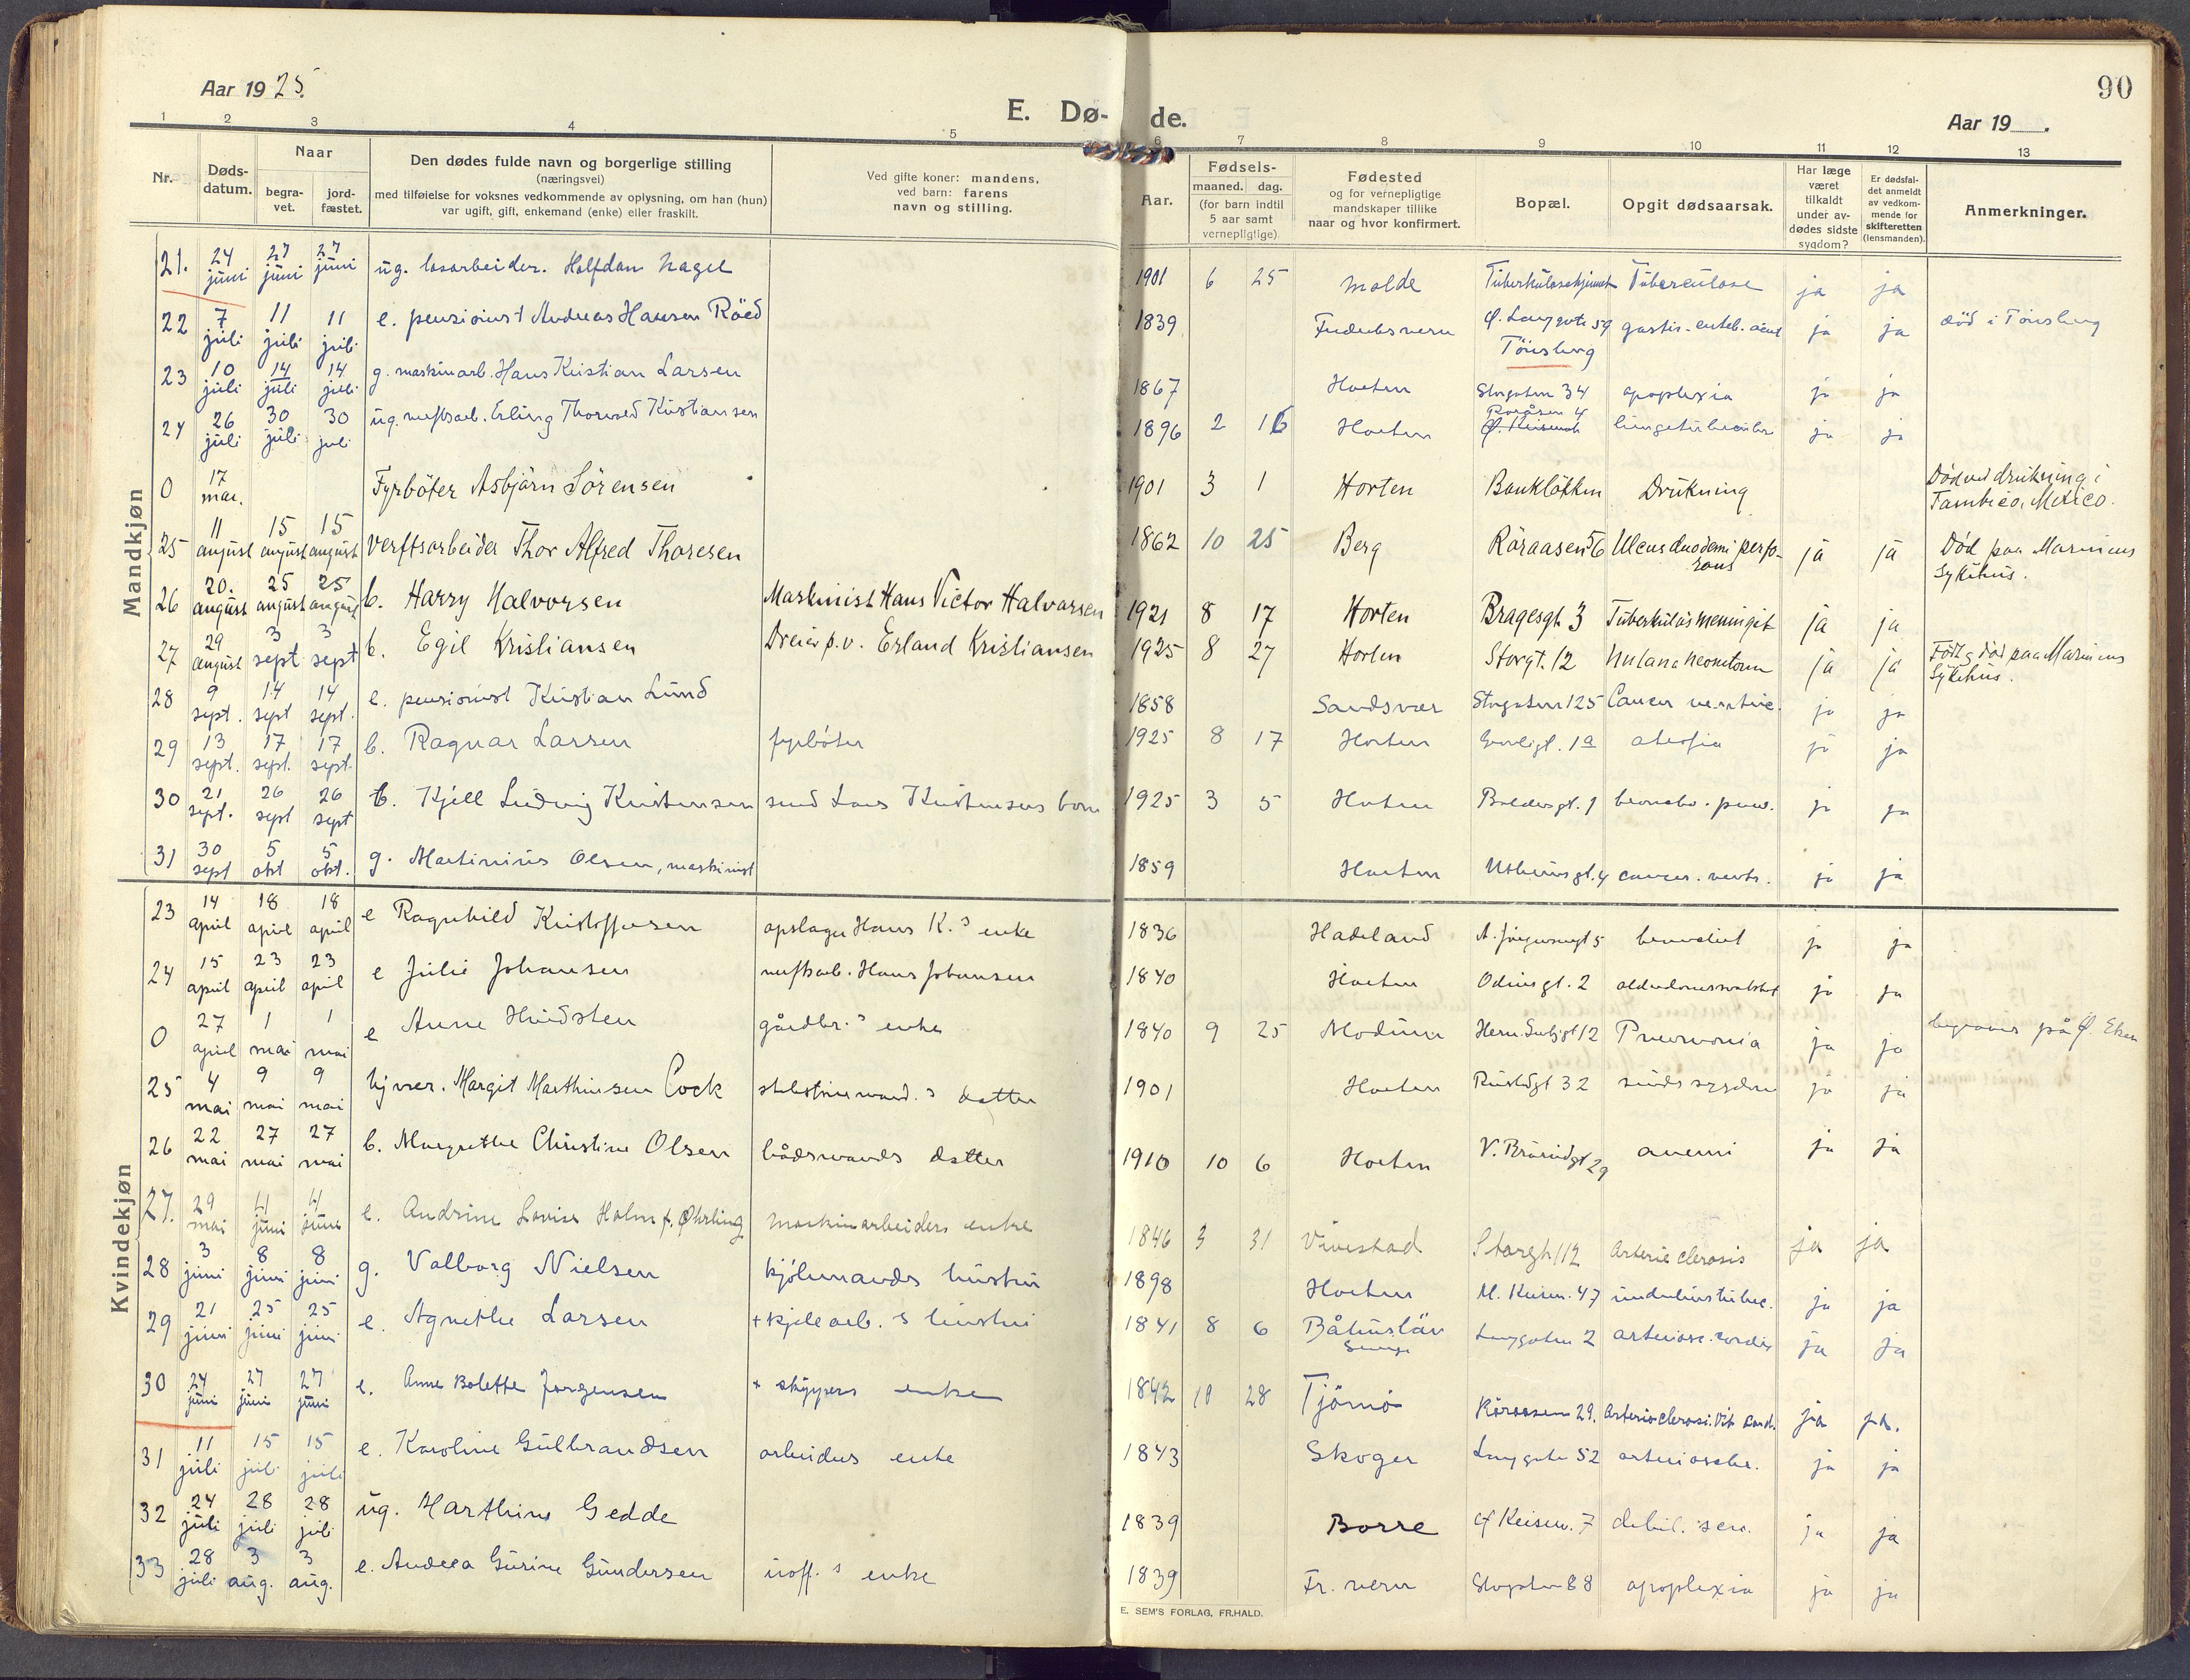 Aar 1925.
E. Dø-
de.
90
Aar 19 .
1 2 3 4 5 6 7 8 9 10 11 12 13
Nr.
Døds-
datum.
Naar
begra-
vet.
jord-
fæstet.
Den dødes fulde navn og borgerlige stilling
(næringsvei)
med tilføielse for voksnes vedkommende av oplysning, om han (hun)
var ugift, gift, enkemand (enke) eller fraskilt.
Ved gifte koner: mandens,
ved barn: farens
navn og stilling.
Aar.
Fødsels-
maaned. dag.
(for barn indtil
5 aar samt
vernepligtige)
Fødested
og for vernepligtige
mandskaper tillike
naar og hvor konfirmert.
Bopæl.
Opgit dødsaarsak.
Har læge
været
tilkaldt
under av-
dødes sidste
sygdom?
Er dødsfal-
det anmeldt
av vedkom-
mende for
skifteretten
(lensmanden).
Anmerkninger.
Mandkjøn
21. 24 juni 27 juni 27 juni ug. løsarbeider. Halfdan Nagel 1901 6 25 Molde Tuberkulosehjemmet Tuberculose ja ja
22 7 juli 11 juli 11 juli e. pensionist Andreas Hansen Röed 1839 Frederiksvern Ø. Langgate 59 Tönsberg ja ja död i Tönsberg
23 10 juli 14 juli 14 juli g. maskinarb. Hans Kristian Larsen 1867 Horten Storgaten 34 apoplexia ja ja
24 26 juli 30 juli 30 juli ug. verftsarb. Erling Thorvald Kristiansen 1896 2 16 Horten Röråsen 4 lungetuberculos ja ja
0 17 mar. Fyrböter Asbjörn Sörensen 1901 3 1 Horten Banklökken Drukning Död ved drukning i
Tambico, Mexico.
25 11 august 15 august 15 august Verftsarbeider Thor Alfred Thoresen 1862 10 25 Berg Röraasen 56 Ulcus duodeni perfo-
rans ja ja Död paa Marinens
Sykehus.
26 20. august 25 august 25 august b. Harry Halvorsen Maskinist Hans Victor Halvorsen 1921 8 17 Horten Bragesgt. 3 Tuberkulös meningit ja ja
27 29 august 3 sept 3 sept b. Egil Kristiansen Dreier p.v. Erland Kristiansen 1925 8 27 Horten Storgt. 12 ja ja Födt og död paa Marinens
Sykehus.
28 9 sept. 14 sept 14 sept. e. pensionist Kristian Lund 1858 Sandsvær Storgaten 125 Cancer ventric. ja ja
29 13 sept. 17 sept. 17 sept. b. Ragnar Larsen fyrböter 1925 8 17 Horten 1a atrofia ja ja
30 21 sept. 26 sept 26 sept b. Kjell Ludvig Kristensen smed Lars Kristensens barn 1925 3 5 Horten Baldersgt. 1 broncho. pneu. ja ja
31 30 sept 5 okt 5 okt. g. Martinius Olsen, maskinist 1859 Horten 4 cancer. ventr. ja ja
Kvindekjøn
23 14 april 18 april 18 april e Ragnhild Kristoffersen opslager Hans K.s enke 1836 Hadeland A. Jörgensensgt 5 ja ja
24 15 april 23 april 23 april e Julie Johansen verftsarb. Hans Johansen 1840 Horten Odins gt. 2 alderdomssvakhet ja ja
0 27 april 1 mai 1 mai e Anne gårdbr.s enke 1840 9 25 Modum 12 Pneumonia ja ja begraves på
25 4 mai 9 mai 9 mai hjvær. Margit Marthinsen Cock datter 1901 Horten 32 sindssygdom ja ja
26 22 mai 27 mai 27 mai b. Margrethe Christine Olsen bådsmands datter 1910 10 6 Horten 29 anemi ja ja
27. 29 mai 4 juni 4 juni e. Andrine Lovise Holm f. Øhrling maskinarbeiders enke 1846 3 31 Vivestad Storgt. 112 Arterieclerosis ja ja
28 3 juni 8 juni 8 juni g. Valborg Nielsen kjölmands hustru 1898 Horten 47 ja ja
29 21 juni 25 juni 25 juni e. Agnethe Larsen + kjelearb.s hustru 1841 8 6 Båhuslän Langgaten 2 ja ja
30 24 juni 27 juni 27 juni e. Anne Bolette Jørgensen + skippers enke 1842 10 28 Tjömö Röraasen 29. ja ja.
31 11 juli 15 juli 15 juli e. Karoline Gulbrandsen arbeiders enke 1843 Skoger Langgate 52 arterioscler. ja ja
32 24 juli 28 juli 28 juli ug. Marthine Gedde 1839 Borre Ø Keiserv. 7 debil. sen. ja ja
33 28 juli 3 aug. 3 aug. e. Andrea Gurine Gundersen uoff.s enke 1839 Fr. vern Storgaten 88 apoplexia ja ja
E. SEM'S FORLAG, FR.HALD.